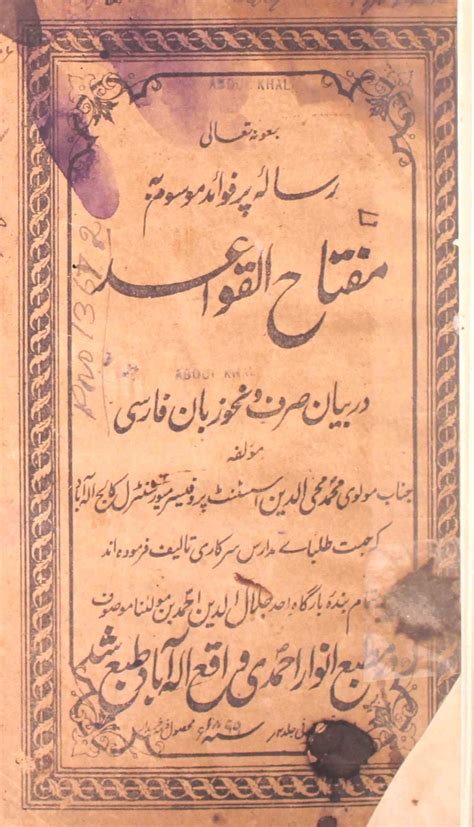 ABDUL KHAL
بعونہ تعالی
رسالۂ پر فوائد موسوم بہ
مفتاح القواعد
PNO 13672
ABDUL KHAL
در بیان صرف و نحو زبان فارسی
مؤلفہ
جناب مولوی محمد محی الدین اسسٹنٹ پروفیسر میور سنٹرل کالج الہ آباد
کہ جہت طلبائے مدارس سرکاری تالیف فرمودہ اند
بندۂ بارگاہ احد جلال الدین احمد بن مولٰنا موصوف
مطبع انوار احمدی واقع الہ آباد طبع شد
جلد سنہ محصول